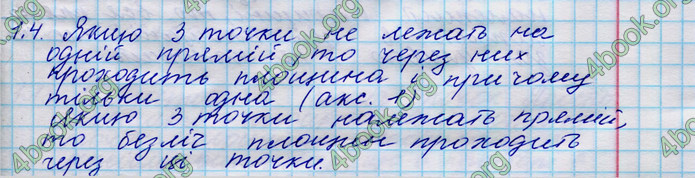 1.4. Якщо 3 точки не лежать на
одній прямій, то через них
проходить площина і причому
тільки одна (акс. 1)
Якщо 3 точки належать прямій,
то безліч площин проходить
через ці точки.
4book.org